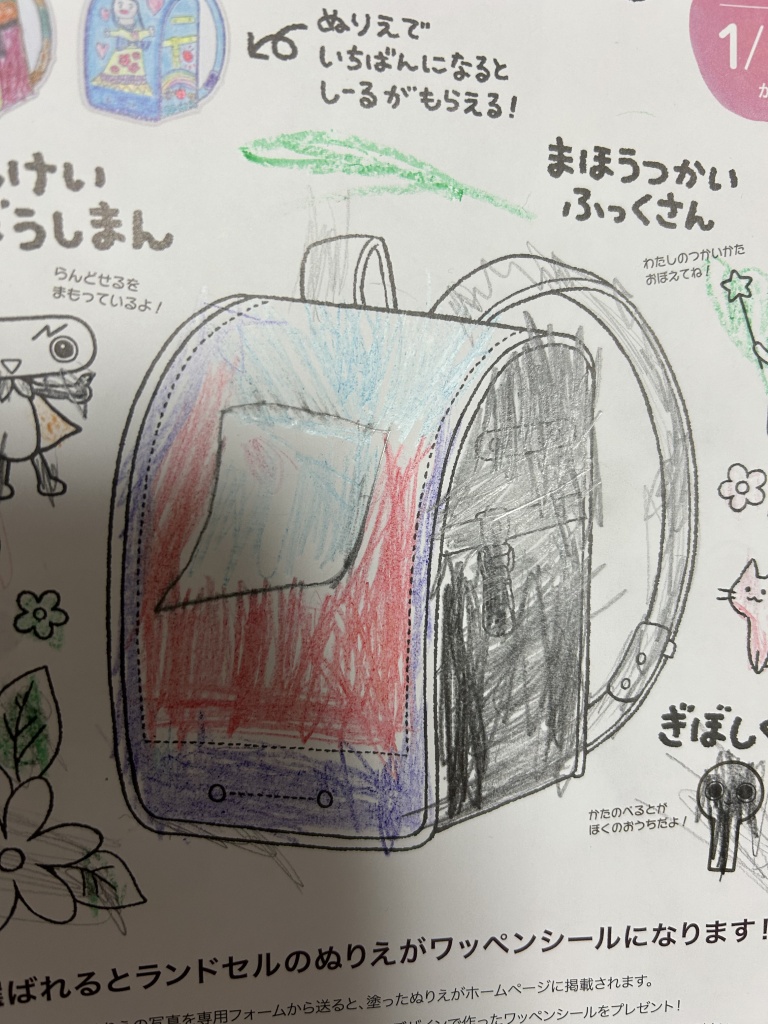 ぬりえで
いちばんになると
しーるがもらえる!
1/
か
けい
うしまん
らんどせるを
まもっているよ!
まほうつかい
ふっくさん
わたしのつかいかた
おぼえてね!
ぎぼし
かたのべるとが
ぼくのおうちだよ!
ばれるとランドセルのぬりえがワッペンシールになります!
の写真を専用フォームから送ると、塗ったぬりえがホームページに掲載されます。
デザインで作ったワッペンシールをプレゼント!